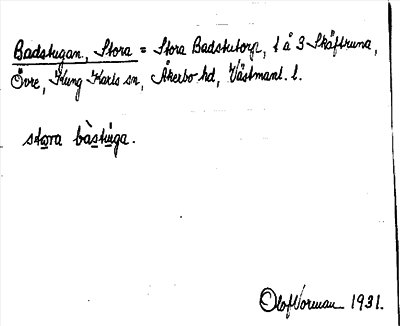 Badstugan, Stora = Stora Badstutorp, t å 3 Skäftruna,
Övre, Kung Karls sn, Åkerbo hd, Västmanl. l.
stora bàstúga.
Olof Norman 1931.